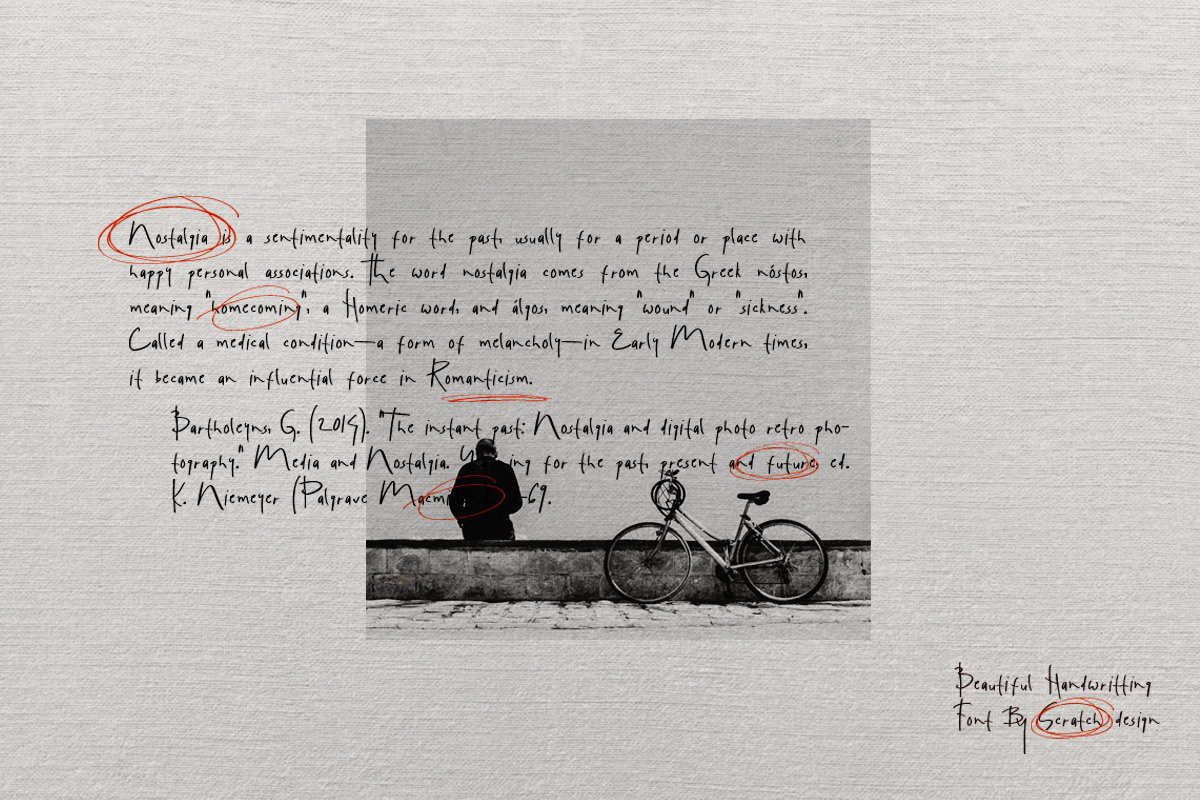 Nostalgia is a sentimentality for the past, usually for a period or place with
happy personal associations. The word nostalgia comes from the Greek nóstos,
meaning "homecoming", a Homeric word, and álgos, meaning "wound" or "sickness".
Called a medical condition—a form of melancholy—in Early Modern times,
it became an influential force in Romanticism.
Bartholeyns, G. (2014). "The instant past: Nostalgia and digital photo retro pho-
tography." Media and Nostalgia. for the past, present and future, ed.
K. Niemeyer (Palgrave
Beautiful Handwritting
Font By Scratch design